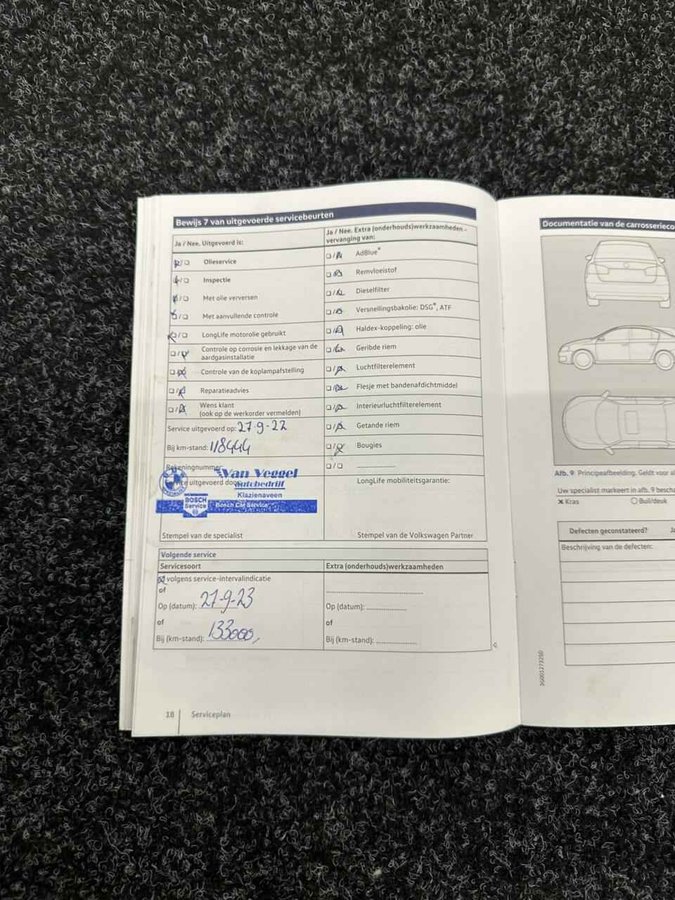 Bewijs 7 van uitgevoerde servicebeurten
Ja / Nee. Uitgevoerd is:
Olieservice
Inspectie
Met olie verversen
Met aanvullende controle
LongLife motorolie gebruikt
Controle op corrosie en lekkage van de
aardgasinstallatie
Controle van de koplampafstelling
Reparatieadvies
Wens klant
(ook op de werkorder vermelden)
Service uitgevoerd op: 27-9-22
Bij km-stand: 118444
Rekeningnummer
Service uitgevoerd door
Van Veggel
autobedrijf
Klazienaveen
BOSCH
Service
Bosch Car Service
Stempel van de specialist
Ja / Nee. Extra (onderhouds)werkzaamheden -
vervanging van:
AdBlue®
Remvloeistof
Dieselfilter
Versnellingsbakolie: DSG®, ATF
Haldex-koppeling: olie
Geribde riem
Luchtfilterelement
Flesje met bandenafdichtmiddel
Interieurluchtfilterelement
Getande riem
Bougies
LongLife mobiliteitsgarantie:
Stempel van de Volkswagen Partner
Volgende service
Servicesoort
volgens service-intervalindicatie
of
Op (datum): 27-9-23
of
Bij (km-stand): 133000,
Extra (onderhouds)werkzaamheden
Op (datum):
of
Bij (km-stand):
18 Serviceplan
Documentatie van de carrosserieco
Afb. 9 Principeafbeelding. Geldt voor al
Uw specialist markeert in afb. 9 bescha
Kras
Buil/deuk
Defecten geconstateerd? Ja
Beschrijving van de defecten: